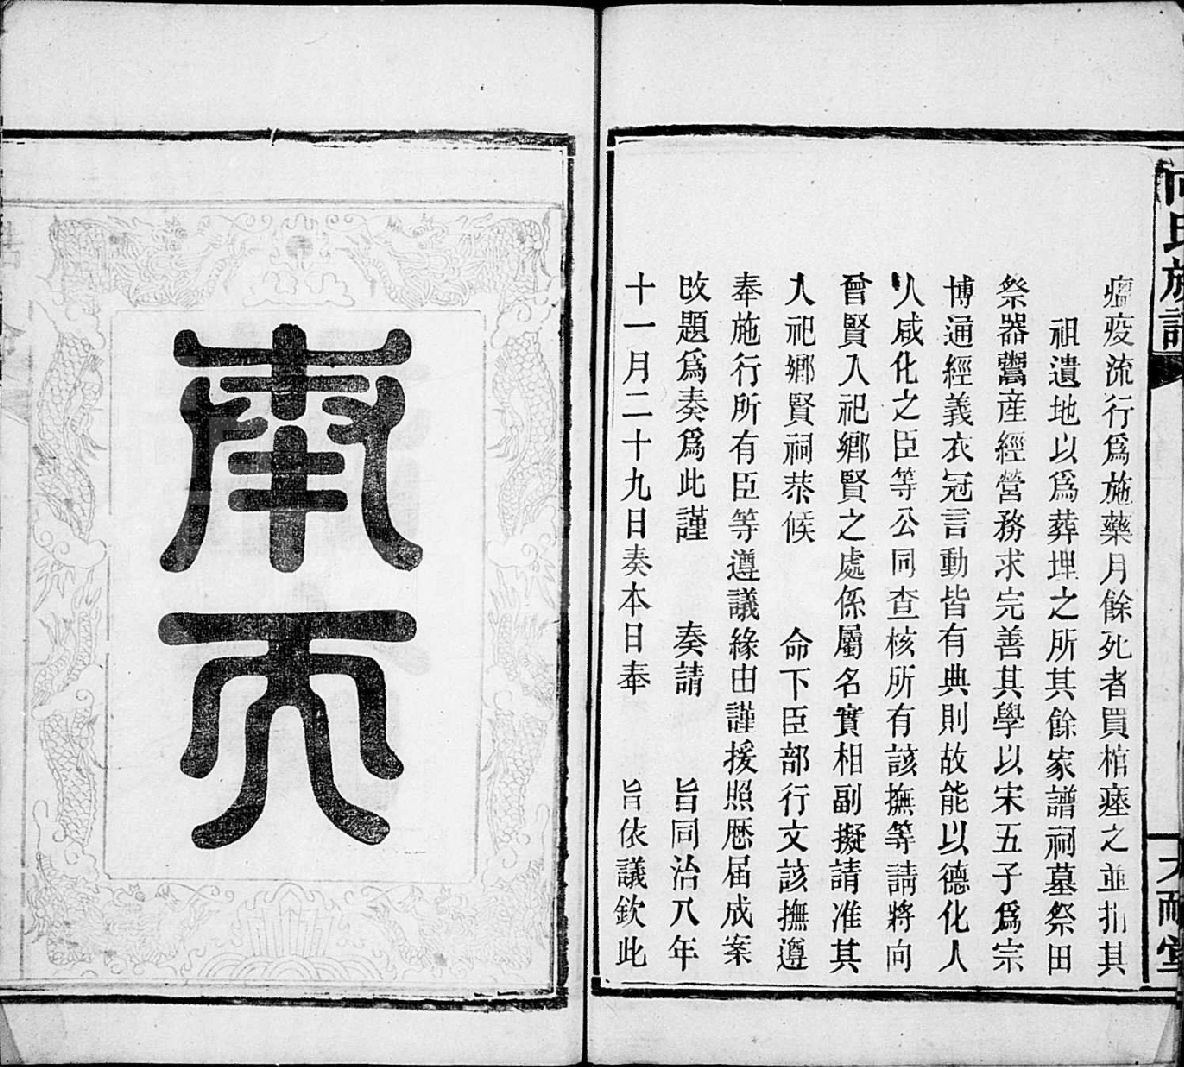 向氏族譜
大耐堂
瘟疫流行爲施藥月餘死者買棺瘞之並捐其
祖遺地以爲葬埋之所其餘家譜祠墓祭田
祭器鬻産經營務求完善其學以宋五子爲宗
博通經義衣冠言動皆有典則故能以德化人
人咸化之臣等公同查核所有該撫等請將向
曾賢入祀鄉賢之處係屬名實相副擬請准其
入祀鄉賢祠恭候 命下臣部行文該撫遵
奉施行所有臣等遵議緣由謹援照歷届成案
改題爲奏爲此謹 奏請 旨同治八年
十一月二十九日奏本日奉 旨依議欽此
奉天